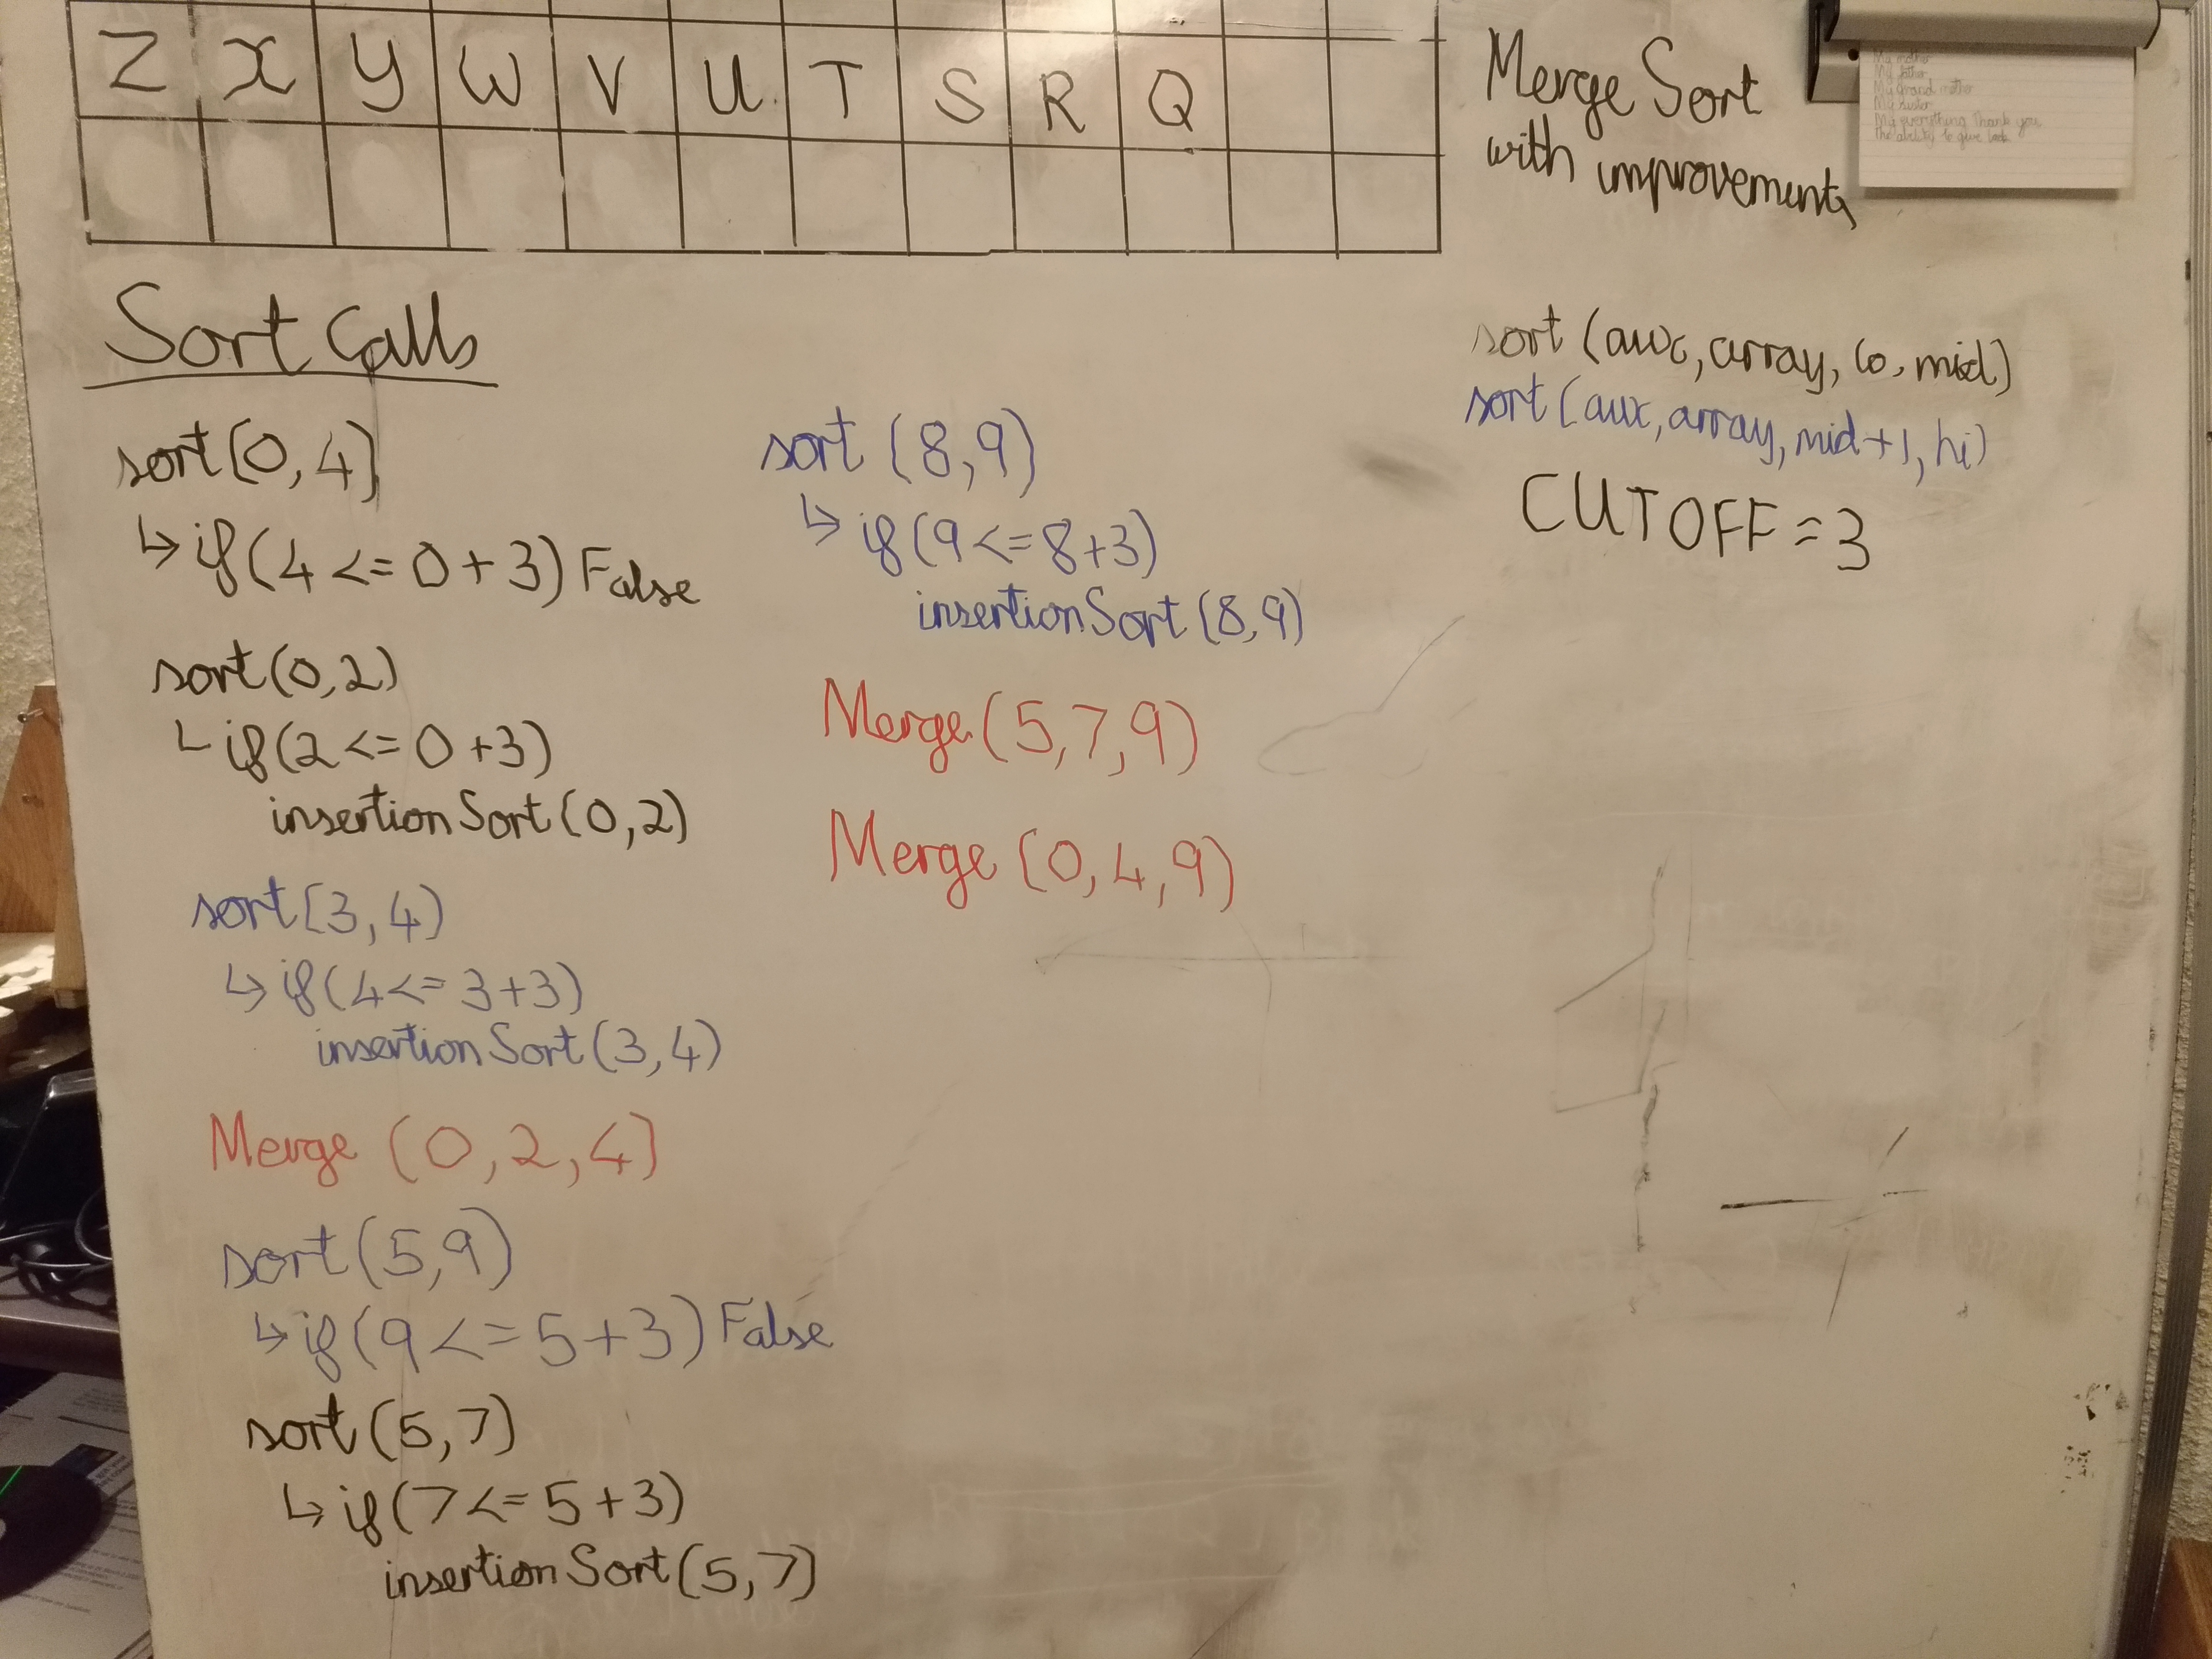 Z X Y W V U T S R Q
Merge Sort
with improvements
My mother
My father
My Grand mother
My sister
My everything Thank you
the ability to give
Sort Calls
sort(0,4)
↳ if(4 <= 0+3) False
sort(0,2)
└ if(2 <= 0+3)
insertionSort(0,2)
sort(3,4)
↳ if(4 <= 3+3)
insertionSort(3,4)
Merge (0,2,4)
sort(5,9)
↳ if(9 <= 5+3) False
sort(5,7)
↳ if(7 <= 5+3)
insertionSort(5,7)
sort (8,9)
↳ if(9 <= 8+3)
insertionSort(8,9)
Merge(5,7,9)
Merge (0,4,9)
sort (aux, array, lo, mid)
sort (aux, array, mid+1, hi)
CUTOFF = 3